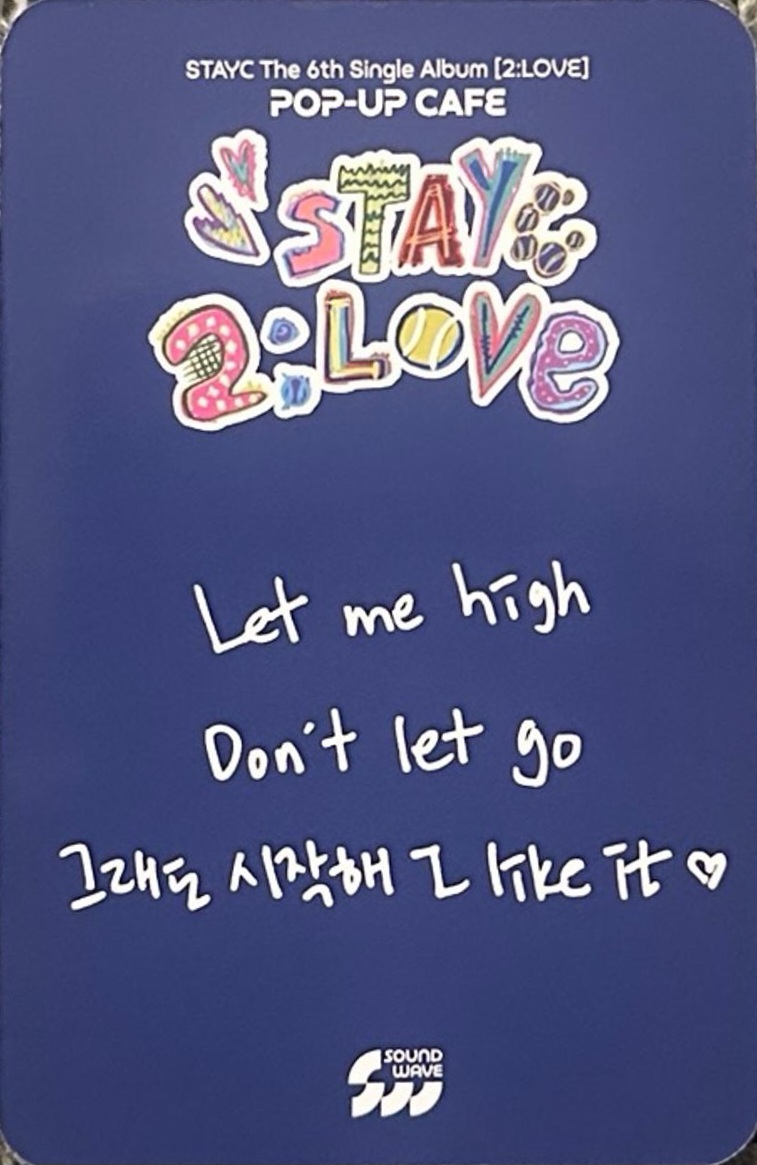 STAYC The 6th Single Album [2:LOVE]
POP-UP CAFE
STAYC
2:LOVe
Let me high
Don't let go
그래도 시작해 I like it ♡
SOUND
WAVE